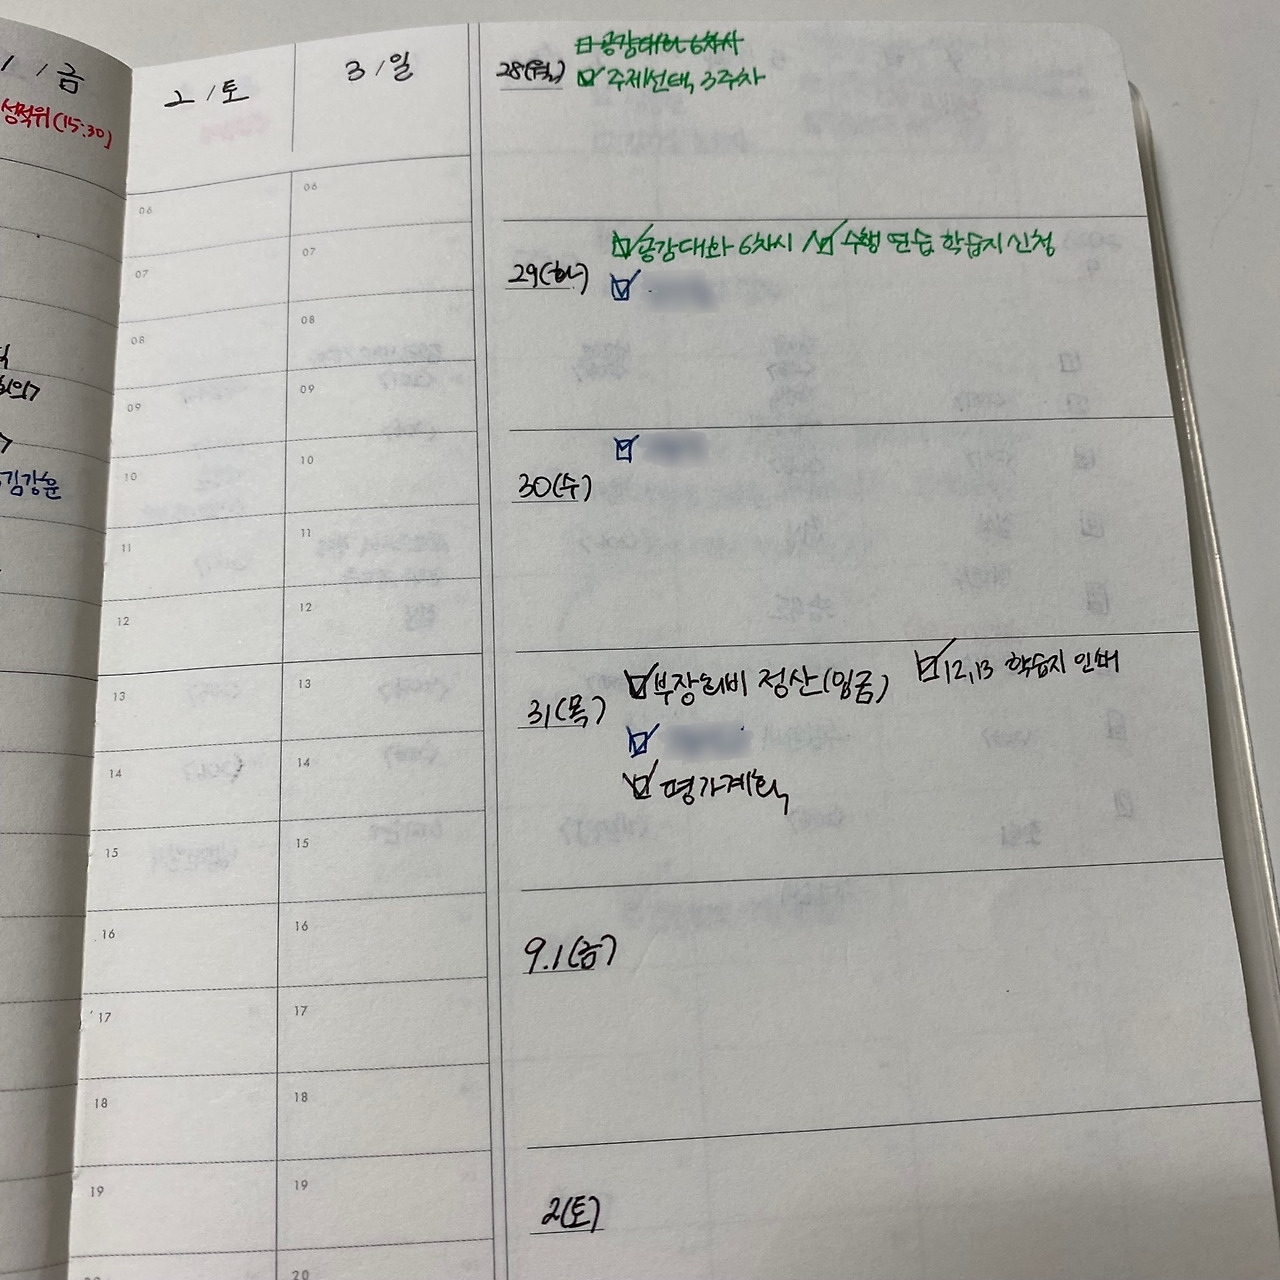 1/금
성적위(15:30)
김강훈
2/토
3/일
06
07
08
09
10
11
12
13
14
15
16
17
18
19
06
07
08
09
10
11
12
13
14
15
16
17
18
19
20
28(월)
공감대화 6차시
주제선택 3주차
29(화)
공감대화 6차시 / 수행 연습 학습지 신청
30(수)
31(목)
부장회비 정산(입금) 12,13 학습지 인쇄
평가계획
9.1(금)
2(토)